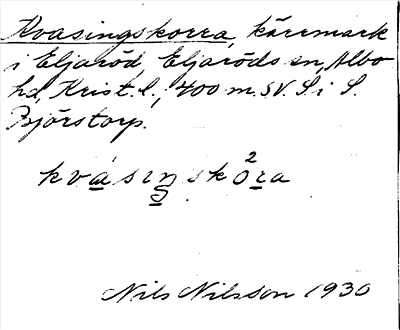 Kvasingskorra, kärrmark
i Eljaröd, Eljaröds sn, Albo
hd, Krist. l., 400 m. SV. S. i S.
Björstorp.
kvásiŋskò²ra
Nils Nilsson 1930